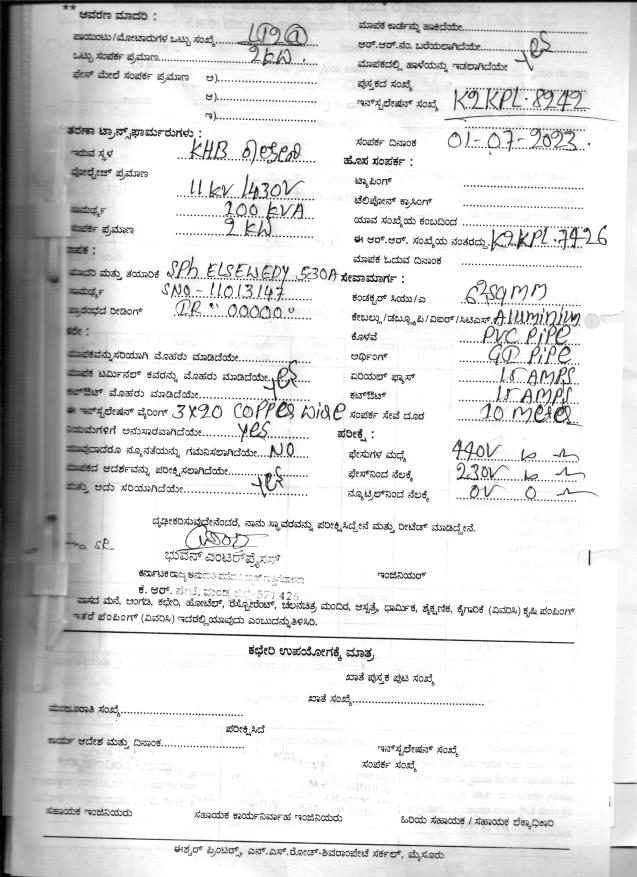 ** ಆವರಣ ಮಾದರಿ :
ಪಾಯಿಂಟು/ಮೋಟಾರುಗಳ ಒಟ್ಟು ಸಂಖ್ಯೆ
ಒಟ್ಟು ಸಂಪರ್ಕ ಪ್ರಮಾಣ 2 KW
ಫೇಸ್ ಮೇಲೆ ಸಂಪರ್ಕ ಪ್ರಮಾಣ ಅ)
ಆ)
ಇ)
ತರಣಾ ಟ್ರಾನ್ಸ್‌ಫಾರ್ಮರುಗಳು :
ಇರುವ ಸ್ಥಳ KHB
ವೋಲ್ಟೇಜ್ ಪ್ರಮಾಣ 11 KV / 430V
ಸಾಮರ್ಥ್ಯ 100 KVA
ಸಂಪರ್ಕ ಪ್ರಮಾಣ 2 KW
ಮಾಪಕ :
ಮಾದರಿ ಮತ್ತು ತಯಾರಿಕೆ SPh ELSEWEDY 530A
ಸಾಮರ್ಥ್ಯ SNO - 11013147
ಪ್ರಾರಂಭದ ರೀಡಿಂಗ್ IR " 00000 "
ಮಾಪಕವನ್ನು ಸರಿಯಾಗಿ ಮೊಹರು ಮಾಡಿದೆಯೇ
ಮಾಪಕ ಟರ್ಮಿನಲ್ ಕವರನ್ನು ಮೊಹರು ಮಾಡಿದೆಯೇ yes
ಕಟ್‌ಔಟ್ ಮೊಹರು ಮಾಡಿದೆಯೇ
ಈ ಇನ್‌ಸ್ಟಲೇಷನ್ ವೈರಿಂಗ್ 3X20 COPPER wire
ನಿಯಮಗಳಿಗೆ ಅನುಸಾರವಾಗಿದೆಯೇ yes
ಯಾವುದಾದರೂ ನ್ಯೂನತೆಯನ್ನು ಗಮನಿಸಲಾಗಿದೆಯೇ NO
ಮಾಪಕದ ಆದರ್ಶವನ್ನು ಪರೀಕ್ಷಿಸಲಾಗಿದೆಯೇ
ಮತ್ತು ಅದು ಸರಿಯಾಗಿದೆಯೇ yes
ಮಾಪಕ ಕಾರ್ಡನ್ನು ಹಾಕಿದೆಯೇ
ಆರ್.ಆರ್.ನಂ. ಬರೆಯಲಾಗಿದೆಯೇ yes
ಮಾಪಕದಲ್ಲಿ ಹಾಳೆಯನ್ನು ಇಡಲಾಗಿದೆಯೇ
ಪುಸ್ತಕದ ಸಂಖ್ಯೆ
ಇನ್‌ಸ್ಟಲೇಷನ್ ಸಂಖ್ಯೆ K2KPL-8242
ಸಂಪರ್ಕ ದಿನಾಂಕ 01-07-2023
ಹೊಸ ಸಂಪರ್ಕ :
ಟ್ಯಾಪಿಂಗ್
ಟೆಲಿಫೋನ್ ಕ್ರಾಸಿಂಗ್
ಯಾವ ಸಂಖ್ಯೆಯ ಕಂಬದಿಂದ
ಈ ಆರ್.ಆರ್. ಸಂಖ್ಯೆಯ ನಂತರದ್ದು K2KPL-7426
ಮಾಪಕ ಓದುವ ದಿನಾಂಕ
ಸೇವಾಮಾರ್ಗ :
ಕಂಡಕ್ಟರ್ ಸಿಯು/ಎ SQMM
ಕೇಬಲ್ಲು/ಡಬ್ಲ್ಯೂಪಿ/ವಿಐಆರ್/ಸಿಟಿಎಸ್ Aluminium
ಕೊಳವೆ PVC PiPE
ಅರ್ಥಿಂಗ್ GI PiPE
ಏರಿಯಲ್ ಫ್ಯೂಸ್ 15 AMPS
ಕಟ್‌ಔಟ್ 15 AMPS
ಸಂಪರ್ಕ ಸೇವೆ ದೂರ 10 meter
ಪರೀಕ್ಷೆ :
ಫೇಸುಗಳ ಮಧ್ಯೆ 440V
ಫೇಸ್‌ನಿಂದ ನೆಲಕ್ಕೆ 230V
ನ್ಯೂಟ್ರಲ್‌ನಿಂದ ನೆಲಕ್ಕೆ 0V 0
ದೃಢೀಕರಿಸುವುದೇನೆಂದರೆ, ನಾನು ಸ್ಥಾವರವನ್ನು ಪರೀಕ್ಷಿಸಿದ್ದೇನೆ ಮತ್ತು ರೀಟೆಡ್ ಮಾಡಿದ್ದೇನೆ.
ಭುವನ್ ಎಂಟರ್‌ಪ್ರೈಸಸ್
ಕರ್ನಾಟಕ ರಾಜ್ಯ ಅನುಮತಿ ಪಡೆದ ವಿದ್ಯುತ್ ಗುತ್ತಿಗೆದಾರರು
ಇಂಜಿನಿಯರ್
ಕೆ. ಆರ್. ಪೇಟೆ, ಮಂಡ್ಯ ಜಿಲ್ಲೆ-571 426
ವಾಸದ ಮನೆ, ಅಂಗಡಿ, ಕಛೇರಿ, ಹೋಟೆಲ್, ರೆಸ್ಟೋರೆಂಟ್, ಚಲನಚಿತ್ರ ಮಂದಿರ, ಆಸ್ಪತ್ರೆ, ಧಾರ್ಮಿಕ, ಶೈಕ್ಷಣಿಕ, ಕೈಗಾರಿಕೆ (ವಿವರಿಸಿ) ಕೃಷಿ ಪಂಪಿಂಗ್
ಇತರೆ ಪಂಪಿಂಗ್ (ವಿವರಿಸಿ) ಇದರಲ್ಲಿ ಯಾವುದು ಎಂಬುದನ್ನು ತಿಳಿಸಿರಿ.
ಕಛೇರಿ ಉಪಯೋಗಕ್ಕೆ ಮಾತ್ರ
ಖಾತೆ ಪುಸ್ತಕ ಪುಟ ಸಂಖ್ಯೆ
ಖಾತೆ ಸಂಖ್ಯೆ
ಮಂಜೂರಾತಿ ಸಂಖ್ಯೆ
ಪರೀಕ್ಷಿಸಿದೆ
ಕಾರ್ಯ ಆದೇಶ ಮತ್ತು ದಿನಾಂಕ
ಇನ್‌ಸ್ಟಲೇಷನ್ ಸಂಖ್ಯೆ
ಸಂಪರ್ಕ ಸಂಖ್ಯೆ
ಸಹಾಯಕ ಇಂಜಿನಿಯರು ಸಹಾಯಕ ಕಾರ್ಯನಿರ್ವಾಹ ಇಂಜಿನಿಯರು ಹಿರಿಯ ಸಹಾಯಕ / ಸಹಾಯಕ ಲೆಕ್ಕಾಧಿಕಾರಿ
ಈಶ್ವರ್ ಪ್ರಿಂಟರ್ಸ್, ಎನ್.ಎಸ್.ರೋಡ್-ಶಿವರಾಂಪೇಟೆ ಸರ್ಕಲ್, ಮೈಸೂರು